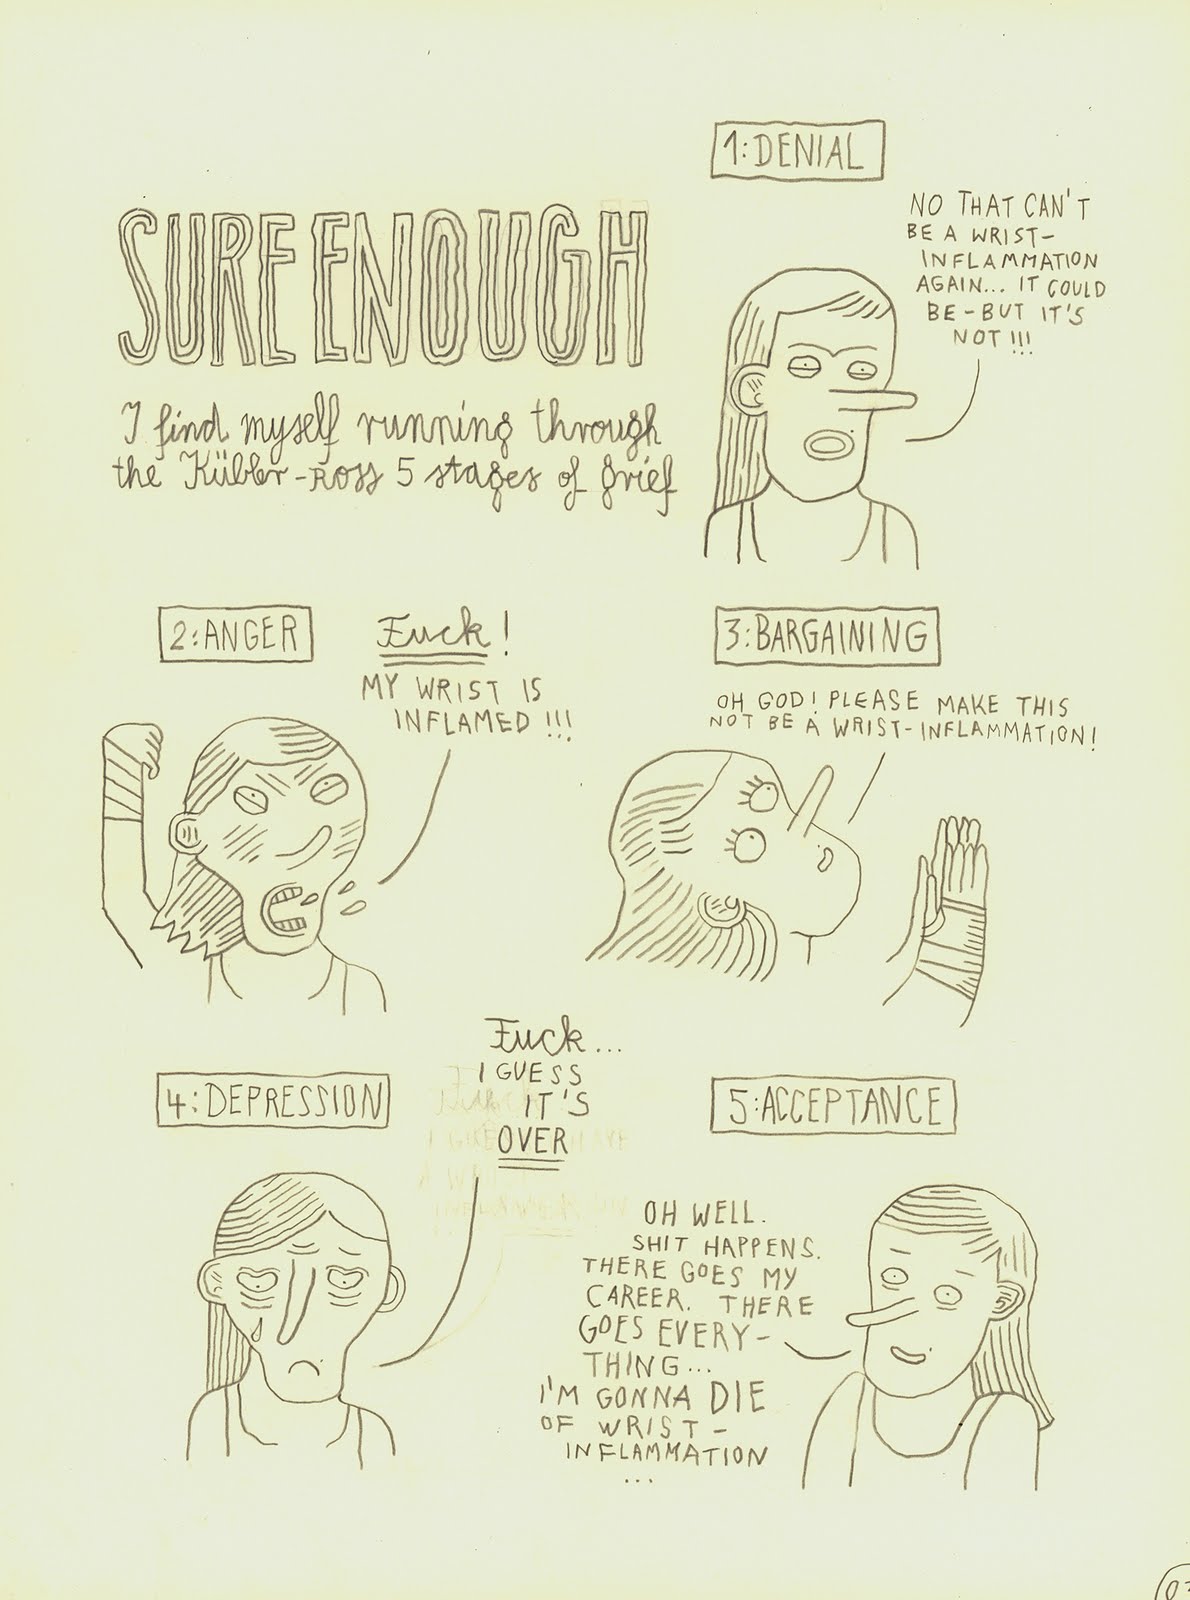 SURE ENOUGH
I find myself running through
the Kübler-Ross 5 stages of grief
1: DENIAL
NO THAT CAN'T
BE A WRIST-
INFLAMMATION
AGAIN... IT COULD
BE - BUT IT'S
NOT!!!
2: ANGER
Fuck!
MY WRIST IS
INFLAMED!!!
3: BARGAINING
OH GOD! PLEASE MAKE THIS
NOT BE A WRIST-INFLAMMATION!
4: DEPRESSION
Fuck...
I GUESS
IT'S
OVER
5: ACCEPTANCE
OH WELL.
SHIT HAPPENS.
THERE GOES MY
CAREER. THERE
GOES EVERY-
THING...
I'M GONNA DIE
OF WRIST-
INFLAMMATION
...